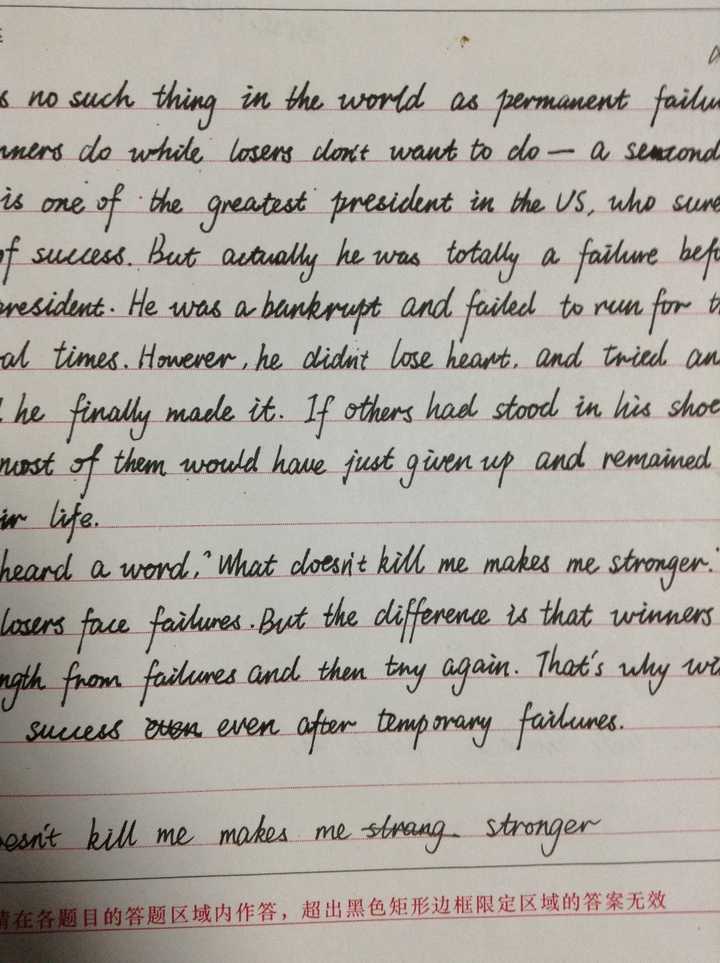 s no such thing in the world as permanent failu
nners do while losers don't want to do — a second
is one of the greatest president in the US, who sure
of success. But actually he was totally a failure befo
president. He was a bankrupt and failed to run for th
al times. However, he didn't lose heart, and tried an
he finally made it. If others had stood in his shoe
most of them would have just given up and remained
ir life.
heard a word, "What doesn't kill me makes me stronger."
losers face failures. But the difference is that winners
ngth from failures and then try again. That's why wi
success even even after temporary failures.
oesn't kill me makes me strang stronger
请在各题目的答题区域内作答，超出黑色矩形边框限定区域的答案无效